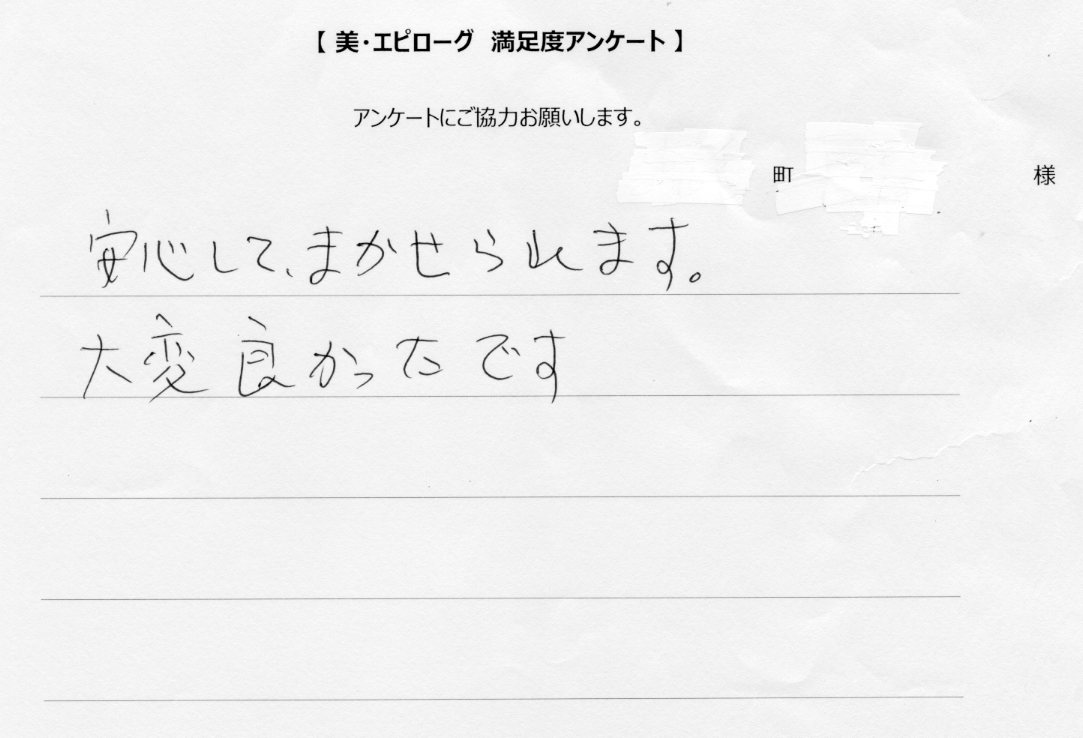 【 美・エピローグ 満足度アンケート 】
アンケートにご協力お願いします。
町 様
安心して、まかせられます。
大変良かったです